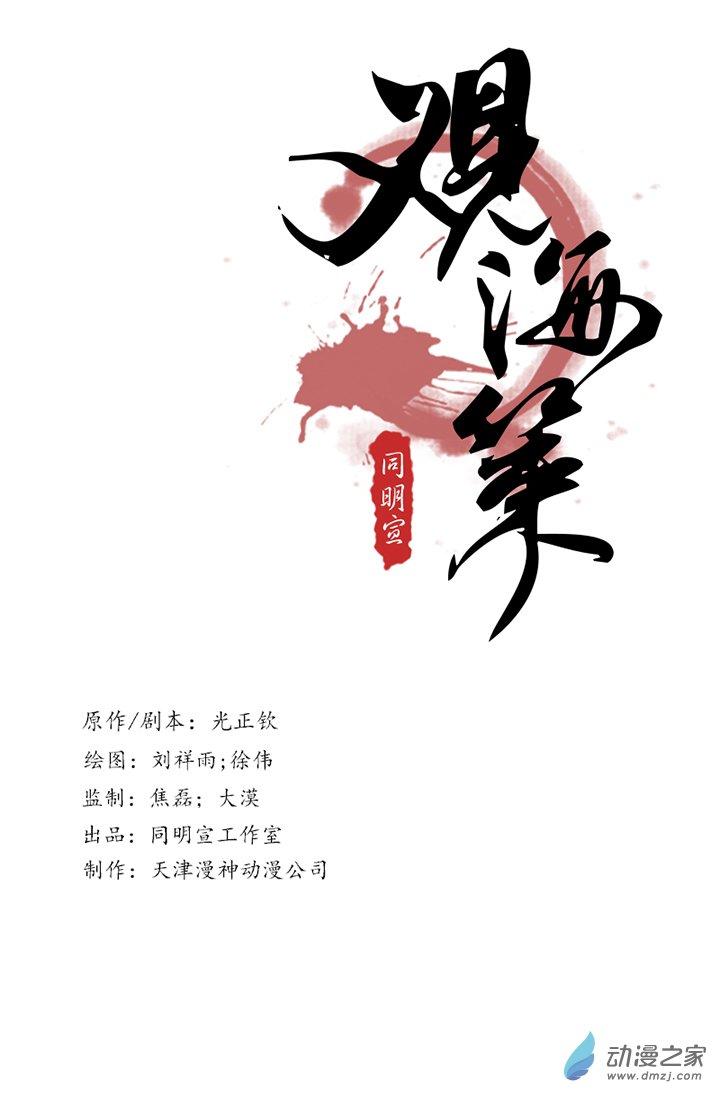 观海策
同明宣
原作/剧本：光正钦
绘图：刘祥雨;徐伟
监制：焦磊；大漠
出品：同明宣工作室
制作：天津漫神动漫公司
动漫之家
www.dmzj.com